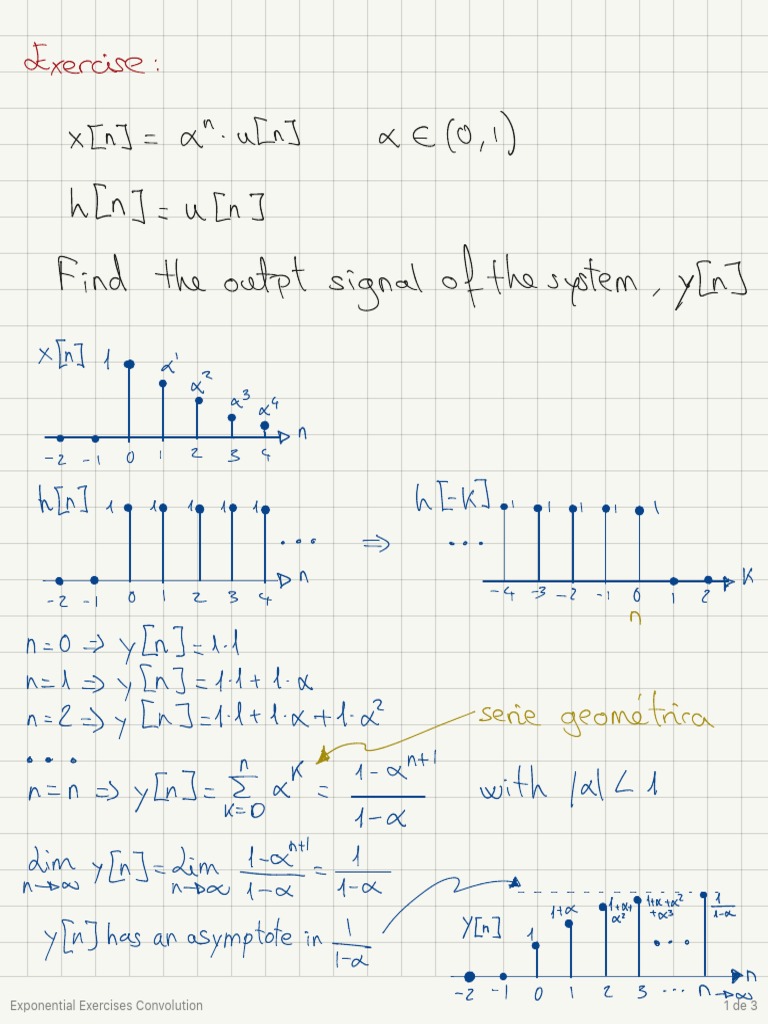 Exercise:
x[n] = α^n · u[n] α ∈ (0,1)
h[n] = u[n]
Find the outpt signal of the system, y[n]
x[n] 1 α^1 α^2 α^3 α^4 n
-2 -1 0 1 2 3 4
h[n] 1 1 1 1 1 ... n
-2 -1 0 1 2 3 4
⇒
h[-K] 1 1 1 1 1 ... K
-4 -3 -2 -1 0 1 2
n
n=0 ⇒ y[n] = 1·1
n=1 ⇒ y[n] = 1·1 + 1·α
n=2 ⇒ y[n] = 1·1 + 1·α + 1·α^2
serie geométrica
...
n=n ⇒ y[n] = Σ_{K=0}^{n} α^K = (1-α^{n+1})/(1-α) with |α| < 1
lim_{n→∞} y[n] = lim_{n→∞} (1-α^{n+1})/(1-α) = 1/(1-α)
y[n] has an asymptote in 1/(1-α)
y[n] 1 1+α 1+α+α^2 1+α+α^2+α^3 ... 1/(1-α) n
-2 -1 0 1 2 3 ... n→∞
Exponential Exercises Convolution
1 de 3